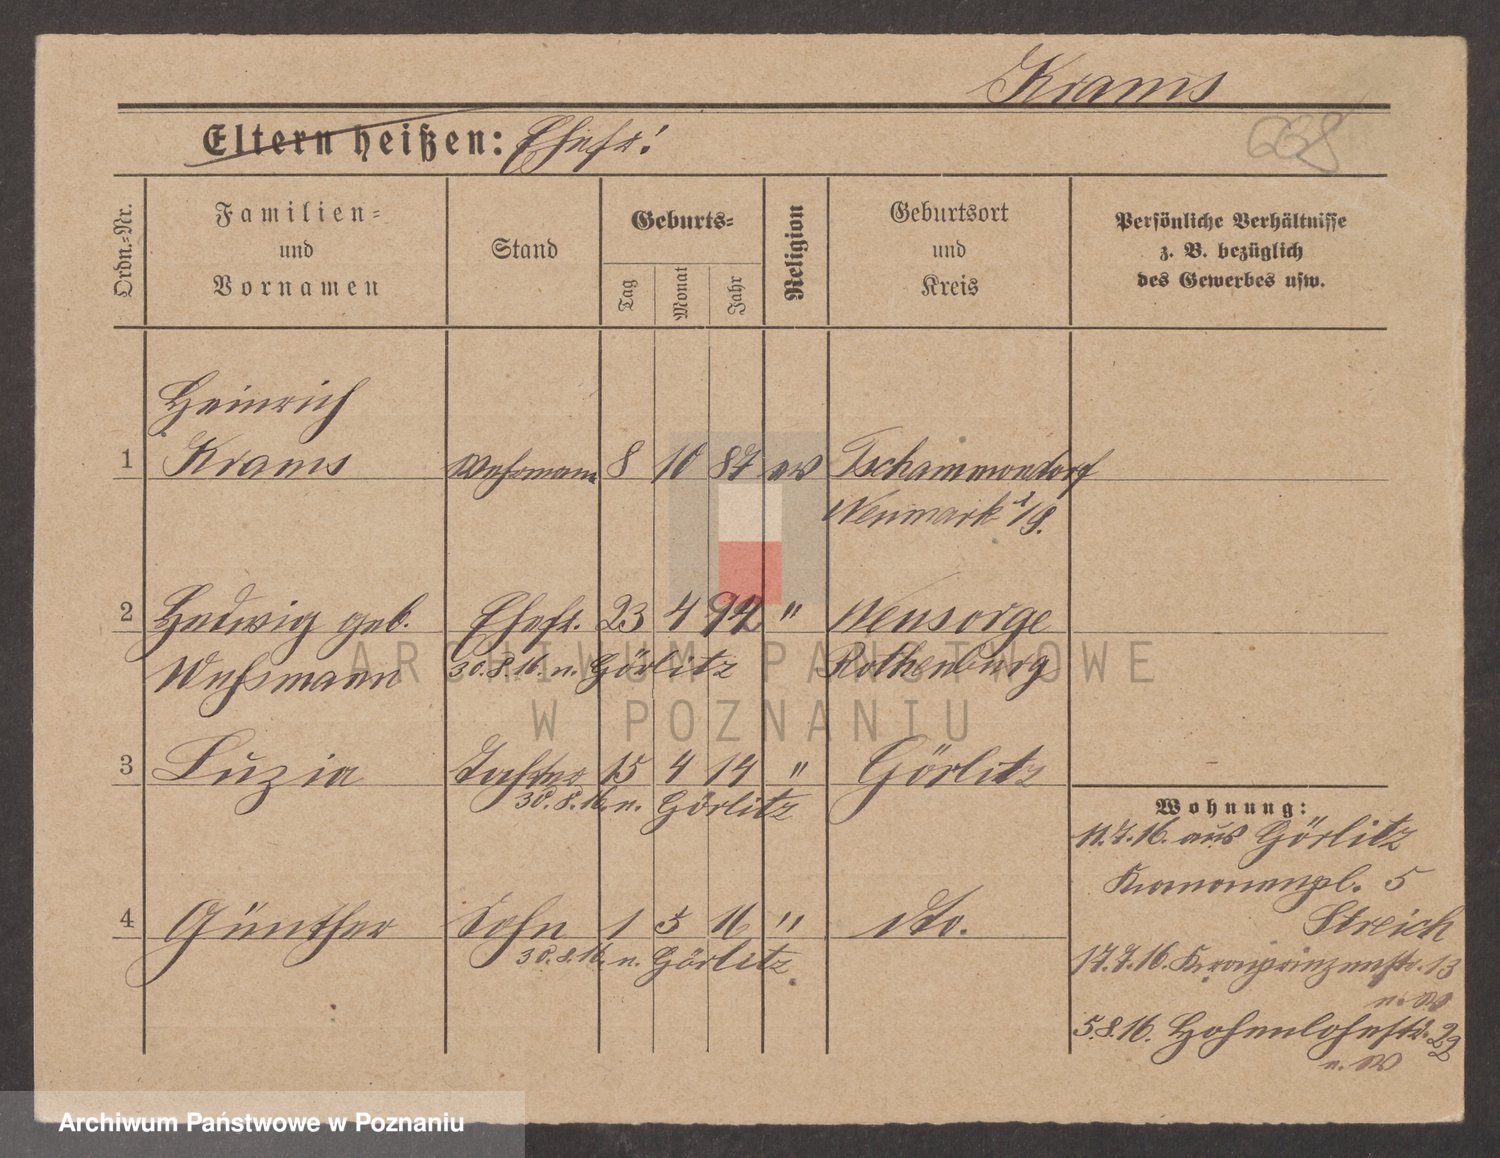 Krams
Eltern heißen: Ehefr!
638
Ordn.=Nr.
Familien=
und
Vornamen
Stand
Geburts=
Tag
Monat
Jahr
Religion
Geburtsort
und
Kreis
Persönliche Verhältnisse
z. B. bezüglich
des Gewerbes usw.
Heinrich
1 Krams Wehrmann 8 10 87 ev Tschammendorf
Neumark i/S.
2 Hedwig geb. Ehefr. 23 4 92 " Neusorge
Wehsmann 30.8.16. n. Görlitz Rothenburg
3 Luzia Tochter 15 4 14 " Görlitz
30.8.16. n. Görlitz
Wohnung:
11.7.16. aus Görlitz
Kanonenpl. 5
Streich
4 Günther Sohn 1 5 16 " dto.
30.8.16. n. Görlitz
17.7.16. Kronprinzenstr. 13
5.8.16. Hohenlohestr. 22
ARCHIWUM PAŃSTWOWE
W POZNANIU
Archiwum Państwowe w Poznaniu